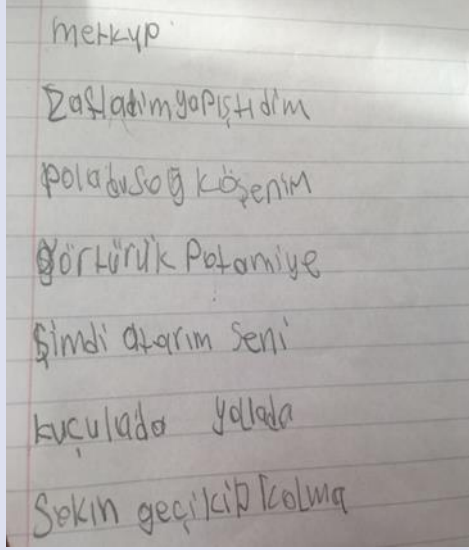 merkyp
Zafladımyapıştıdım
poladusoğ köşenim
görtürük Potamiye
şimdi atarım seni
kuçulada yollada
Sokın geçikip kolma